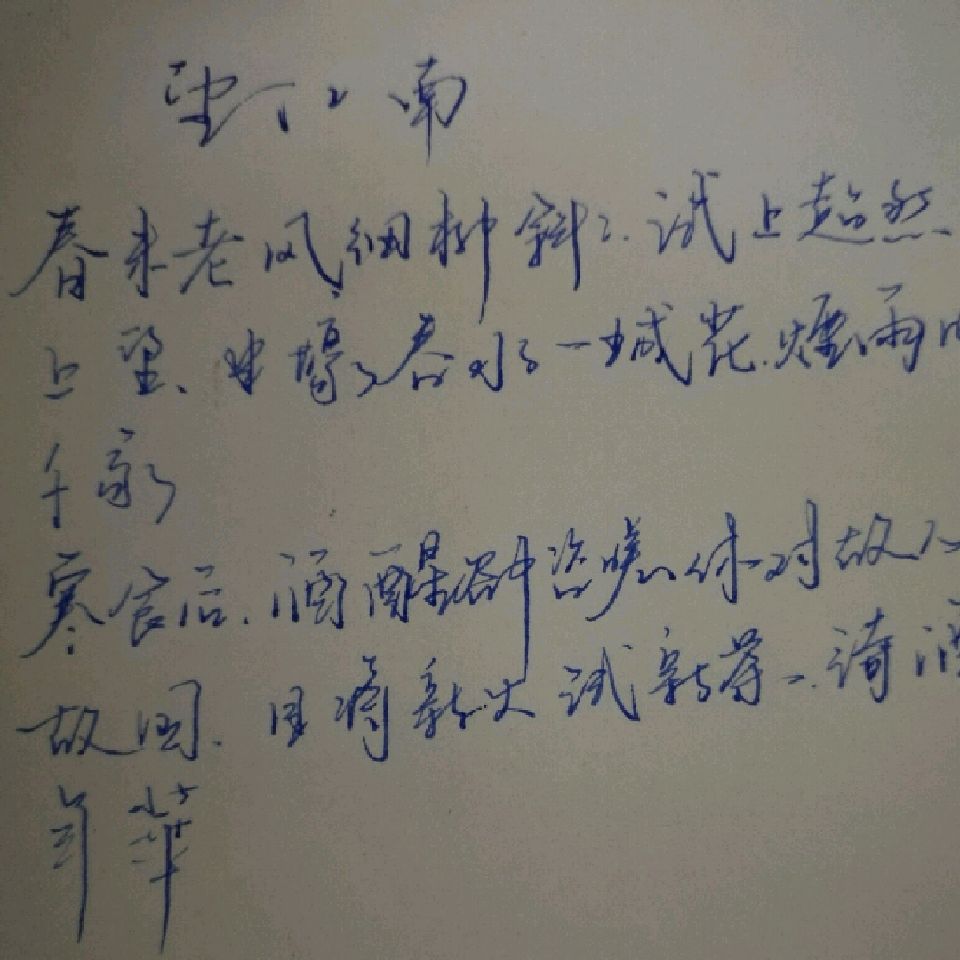 望江南
春未老风细柳斜々.试上超然
上望、半壕春水一城花.煙雨
千家
寒食后.酒醒却咨嗟休对故人
故国.且将新火试新茶.诗酒
年华